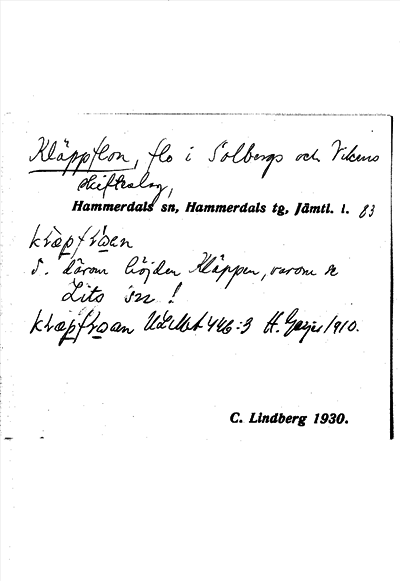 Kläppflon, flo i Solbergs och Vikens
skifteslag,
Hammerdals sn, Hammerdals tg, Jämtl. l. 83
S. därom höjden Kläppen, varom se
Lits sn !
ULMA 446:3 H. Geijer 1910.
C. Lindberg 1930.